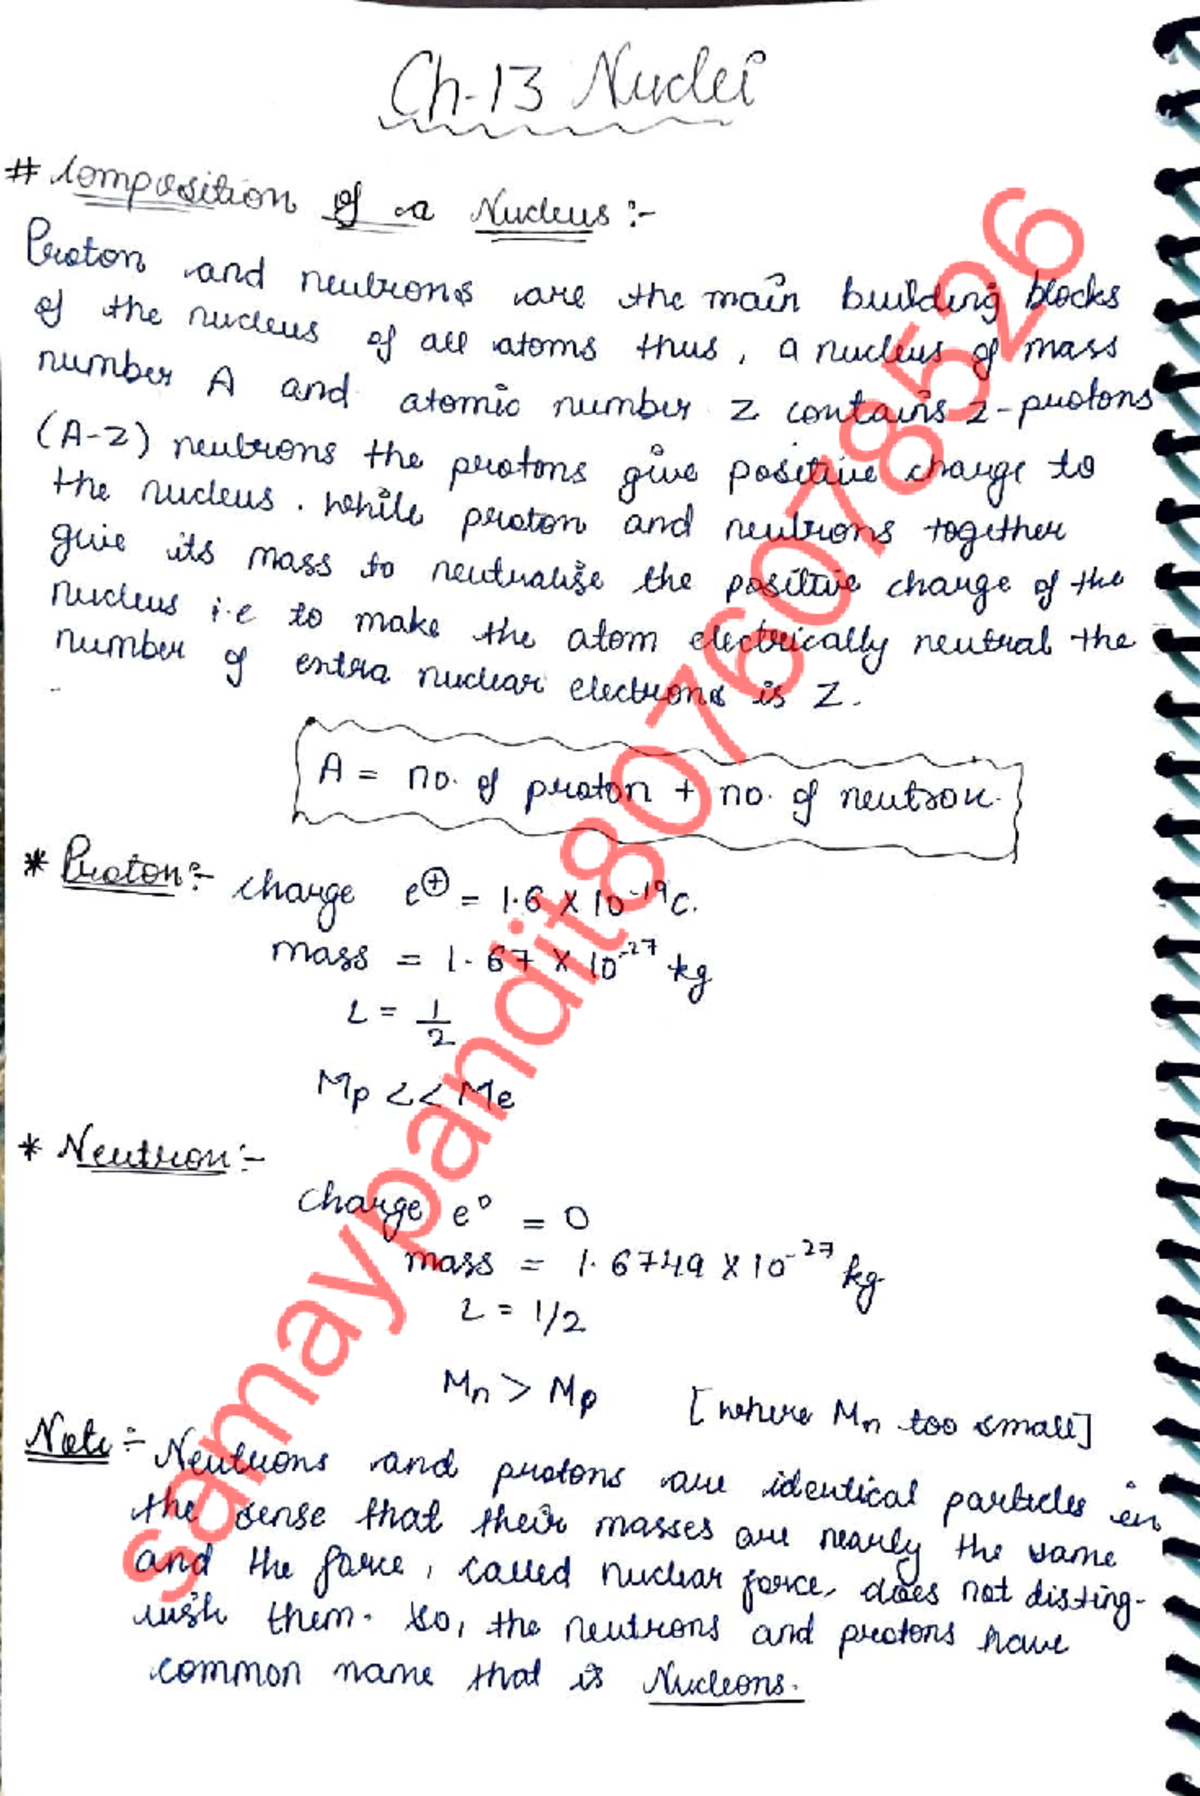 Ch-13 Nuclei
# Composition of a Nucleus :-
Proton and neutrons are the main building blocks
of the nucleus of all atoms thus, a nucleus of mass
number A and atomic number Z contains Z-protons
(A-Z) neutrons the protons give positive charge to
the nucleus. While proton and neutrons together
give its mass to neutralise the positive charge of the
nucleus i.e to make the atom electrically neutral the
number of extra nuclear electrons is Z.
A = no. of proton + no. of neutron.
* Proton :- charge e⊕ = 1.6 X 10⁻¹⁹ C.
mass = 1.67 X 10⁻²⁷ kg
L = 1/2
Mp << Me
* Neutron :-
Charge e⁰ = 0
mass = 1.6749 X 10⁻²⁷ kg
L = 1/2
Mn > Mp [where Mn too small]
Note :- Neutrons and protons are identical particles in
the sense that their masses are nearly the same
and the force, called nuclear force, does not disting-
uish them. So, the neutrons and protons have
common name that is Nucleons.
samaypandit8076078526